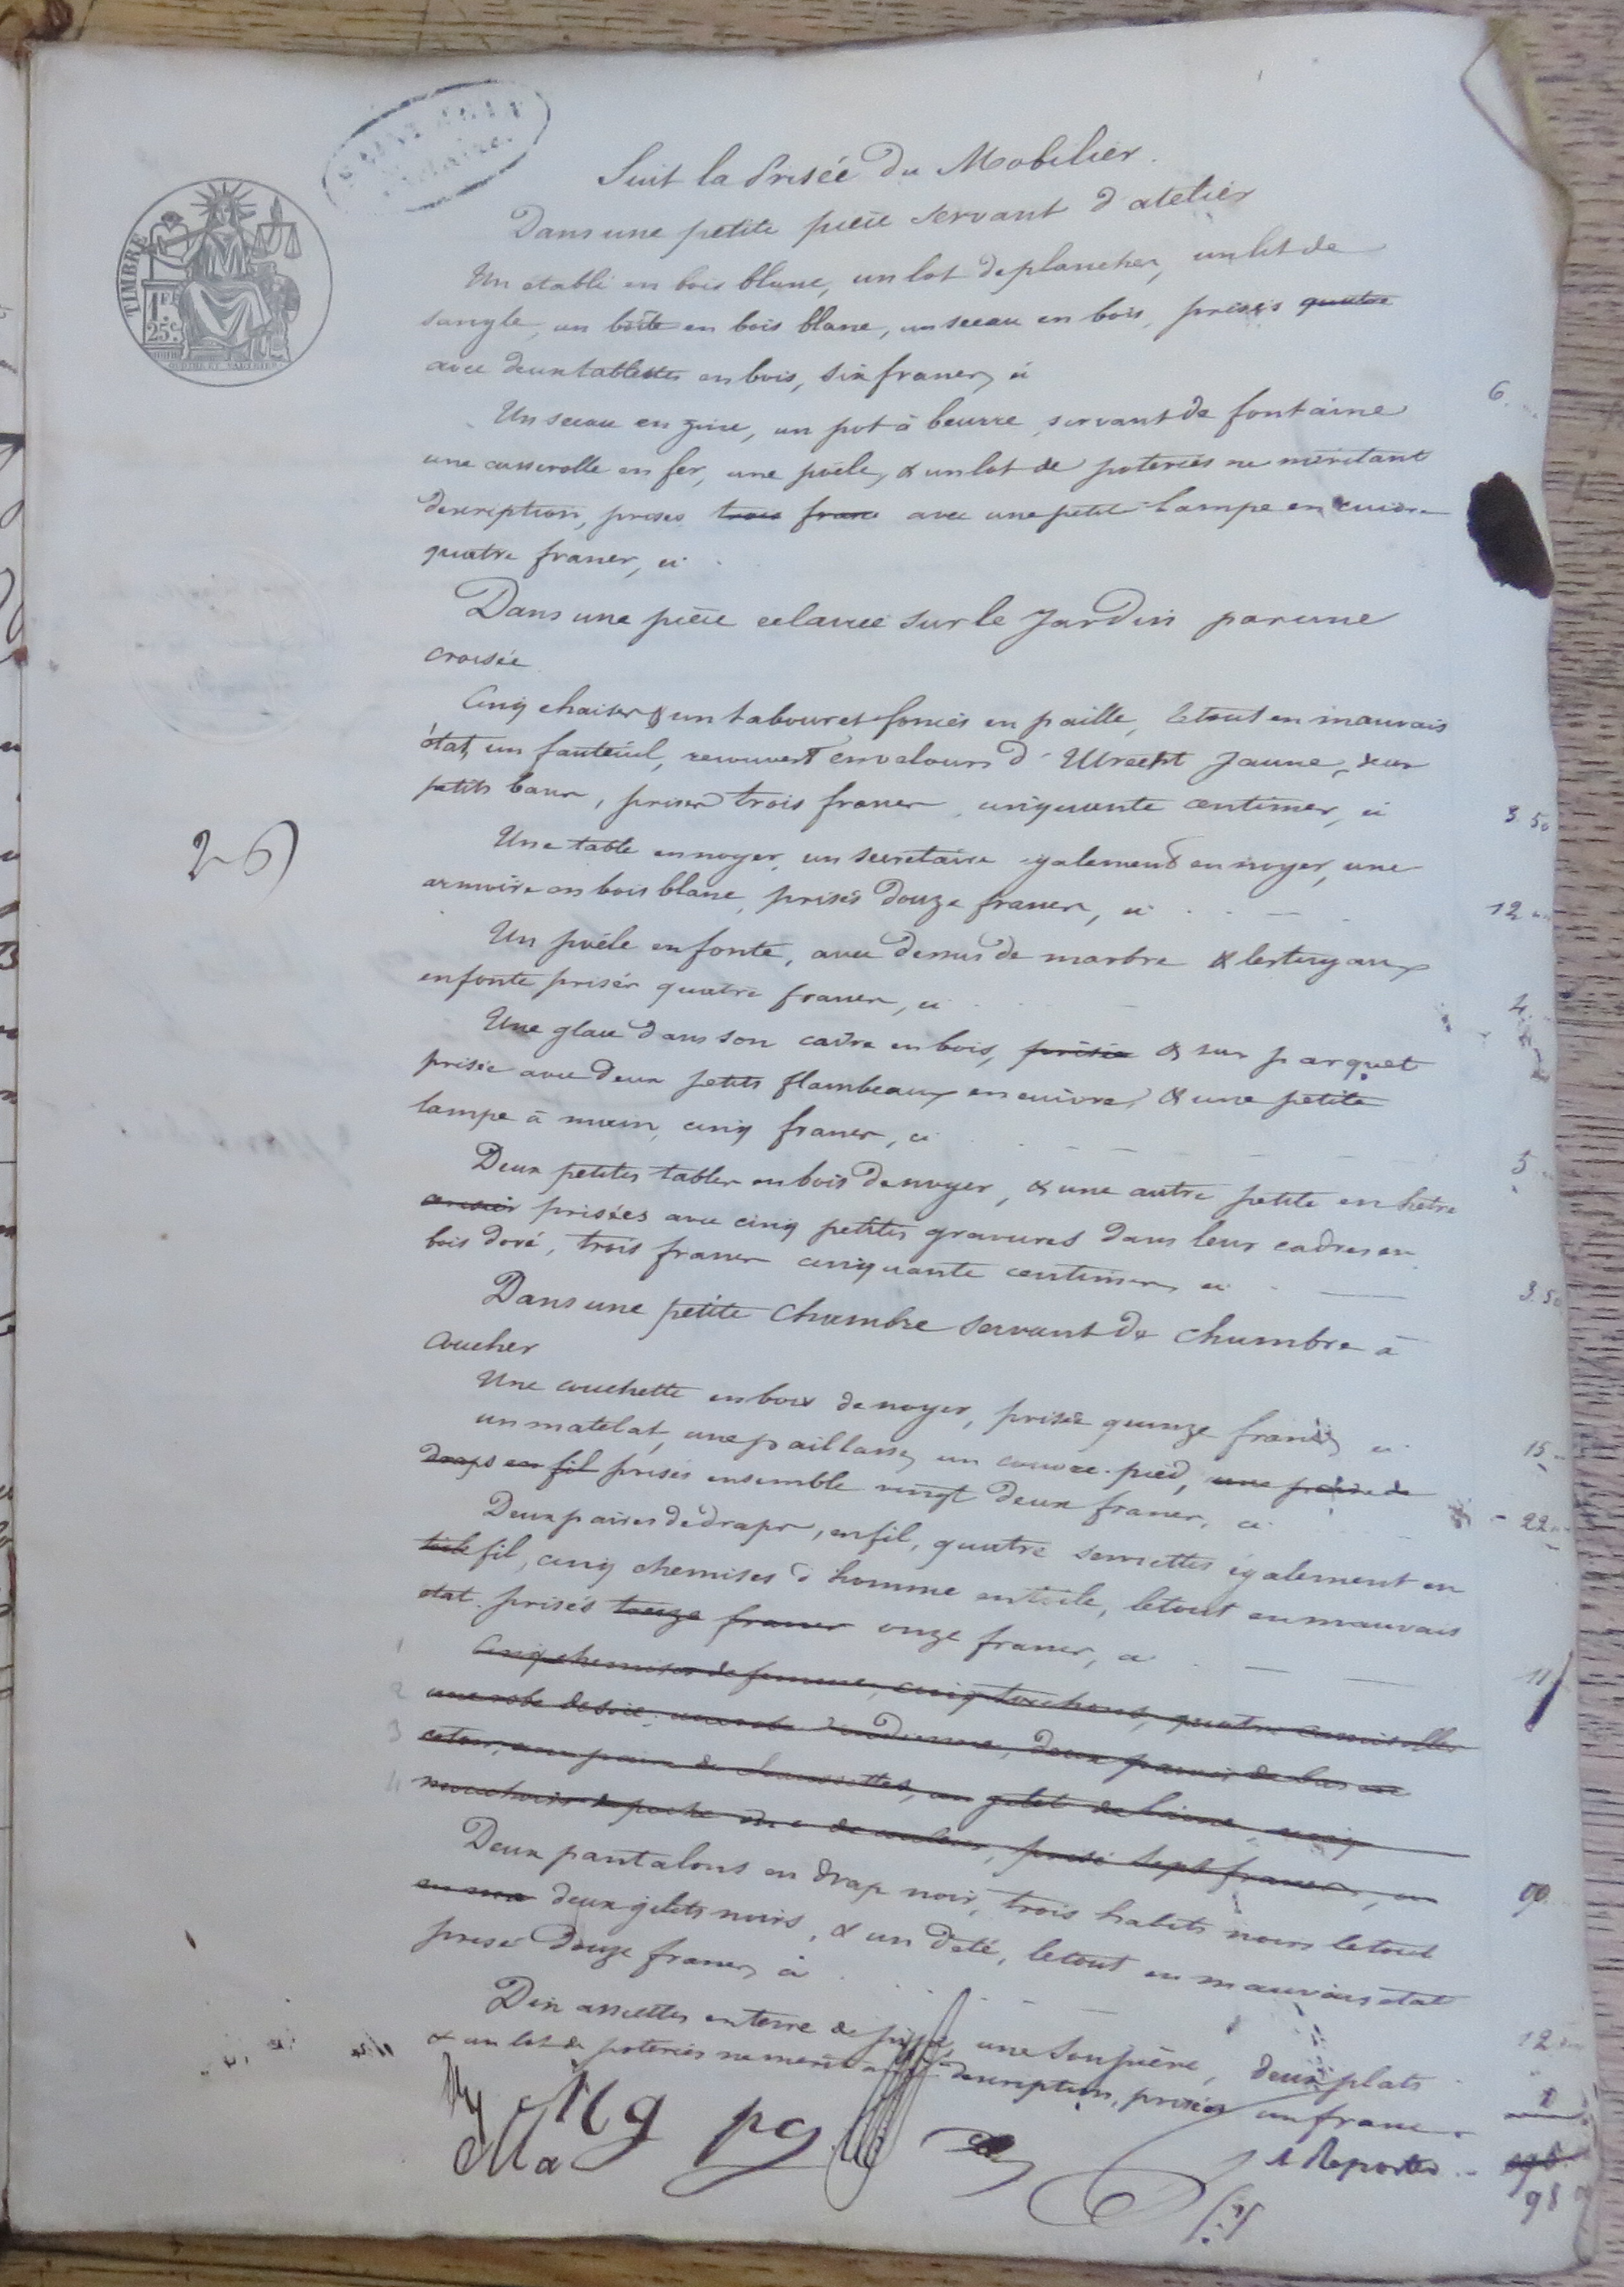 TIMBRE
1 FR
25 C.
Suit la Prisée Du Mobilier.
Dans une petite pièce servant d'atelier
Un établi en bois blanc, un lot de plancher, un lit de
sangle, un boîte en bois blanc, un seeau en bois, prisés quatre
avec deux tablettes en bois, six francs, ci
6
Un seeau en zinc, un pot à beurre servant de fontaine
une casserolle en fer, une poële, & un lot de poteries ne méritant
description, prisés trois franc avec une petite lampe en cuivre
quatre francs, ci
Dans une pièce eclairée sur le Jardin par une
croisée
Cinq chaises & un tabouret foncés en paille, le tout en mauvais
état, un fauteuil, recouvert en velours d'Utrecht Jaune, deux
petits bancs, prisés trois francs cinquante centimes, ci
3.50
26
Une table en noyer, un secretaire egalement en noyer, une
armoire en bois blanc, prisés douze francs, ci
12
Un poële en fonte, avec dessus de marbre & les tuyaux
en fonte prisés quatre francs, ci
4
Une glace dans son cadre en bois, prisée & sur parquet
prisée avec deux petits flambeaux en cuivre, & une petite
lampe à main, cinq francs, ci
5
Deux petites tables en bois de noyer, & une autre petite en hêtre
prisées avec cinq petites gravures dans leur cadres en
bois doré, trois francs cinquante centimes, ci
3.50
Dans une petite Chambre servant de chambre à
coucher
Une couchette en bois de noyer, prisée quinze francs, ci
15
un matelat, une paillasse, un couvre-pied, une paire de
draps en fil prisés ensemble vingt deux francs, ci
22
Deux paires de draps, en fil, quatre serviettes également en
toile fil, cinq chemises d'homme en toile, le tout en mauvais
état prisés treize francs onze francs, ci
11
1 Cinq chemises de femme, cinq torchons, quatre camisolles
2 une robe de soie, une robe d'indienne, deux paires de bas en
3 coton, une paire de chaussettes, un gilet de laine, cinq
4 mouchoirs de poche de couleur, prisé sept francs, ci
Deux pantalons en drap noir, trois habits noirs le tout
deux gilets noirs, & un d'été, le tout en mauvais état
prisé douze francs, ci
12
Dix assiettes en terre de pipe, une soupière, deux plats
& un lot de poteries ne méritant description, prisées un franc
1
A Reporter
98
Mg
pg
Ma